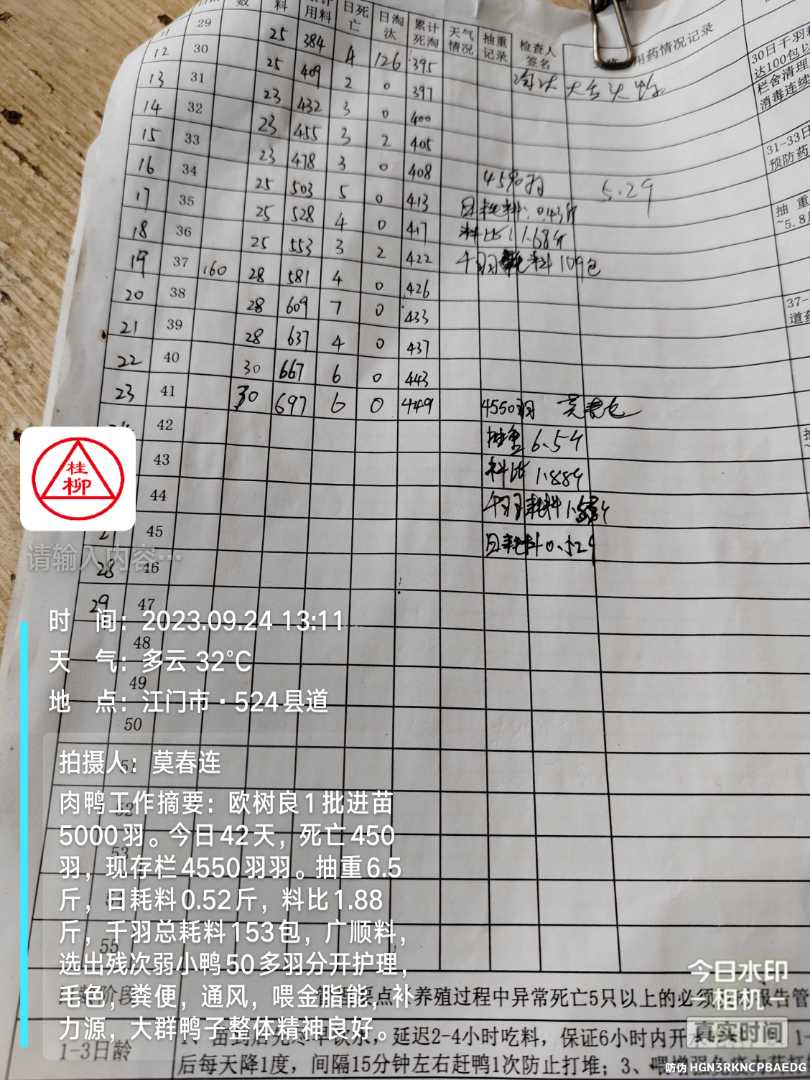 数 料 用料 日死亡 日淘汰 累计死淘 天气情况 抽重记录 检查人签名 用药情况记录
29
12 30 25 384 4 126 395
13 31 25 409 2 0 397
14 32 23 432 3 0 400
15 33 23 455 3 2 405
16 34 23 478 3 0 408
17 35 25 503 5 0 413
18 36 25 528 4 0 417
19 37 160 25 553 3 2 422
20 38 28 581 4 0 426
21 39 28 609 7 0 433
22 40 28 637 4 0 437
23 41 30 667 6 0 443
42 30 697 6 0 449
43
44
45
28 46
29 47
48
49
50
55
4590羽 5.29
日耗料:0.43斤
料比:1.68斤
千羽耗料109包
4550羽 莫春连
抽重6.5斤
料比1.88斤
千羽耗料
日耗料0.52斤
30日千羽
达100包以
栏舍清理
消毒连续
31-33日
预防药
抽 重
~5.8
37-
道药
桂柳
请输入内容…
时 间：2023.09.24 13:11
天 气：多云 32℃
地 点：江门市·524县道
拍摄人：莫春连
肉鸭工作摘要：欧树良1批进苗
5000羽。今日42天，死亡450
羽，现存栏4550羽羽。抽重6.5
斤，日耗料0.52斤，料比1.88
斤，千羽总耗料153包，广顺料，
选出残次弱小鸭50多羽分开护理，
毛色，粪便，通风，喂金脂能，补
力源，大群鸭子整体精神良好。
阶段 要点 养殖过程中异常死亡5只以上的必须 报告管
1-3日龄 延迟2-4小时吃料，保证6小时内开
后每天降1度，间隔15分钟左右赶鸭1次防止打堆；3、
今日水印
相机
真实时间
防伪 HGN3RKNCPBAEDG